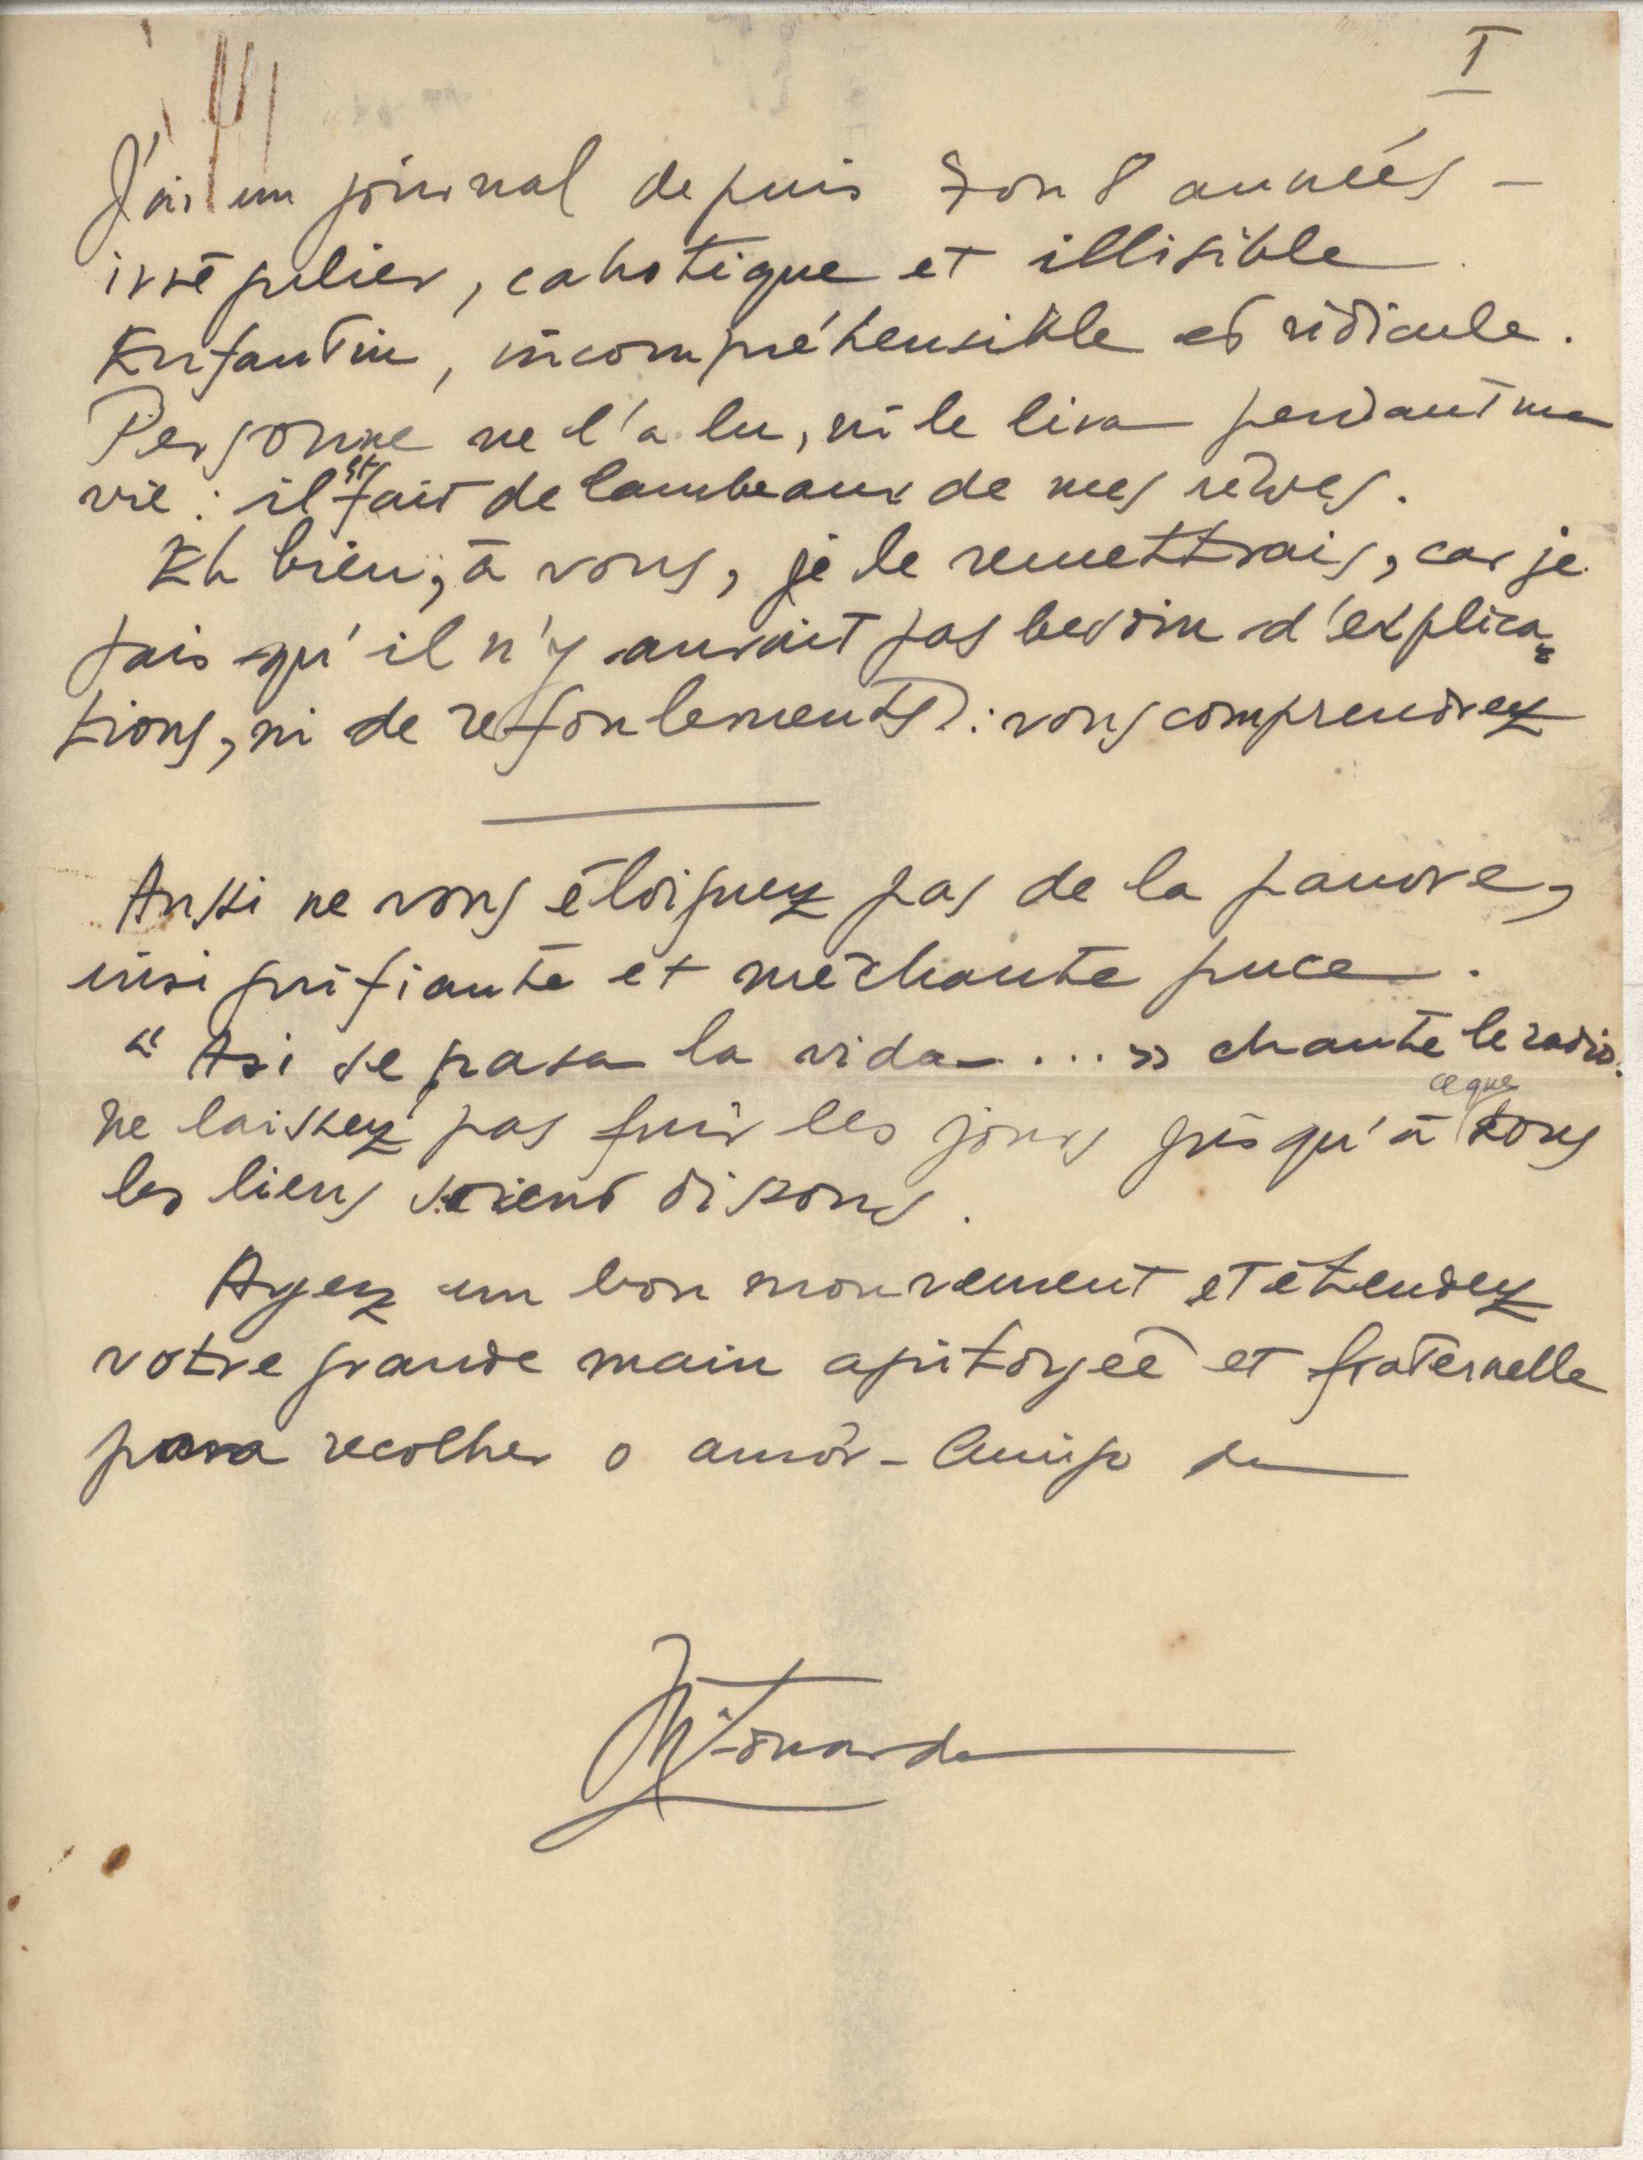 I
J'ai un journal depuis 7 ou 8 années –
irrégulier, cahotique et illisible
Enfantin, incompréhensible et ridicule.
Personne ne l'a lu, ni le lira pendant ma
vie : il est fait de lambeaux de mes rêves.
Eh bien, à vous, je le remettrais, car je
sais qu'il n'y aurait pas besoin d'explica=
tions, ni de refoulements : vous comprendrez
Aussi ne vous éloignez pas de la pauvre,
insignifiante et méchante puce.
" Asi se pasa la vida... » chante le radio.
ne laissez pas fuir les jours jusqu'à ce que tous
les liens soient dissous.
Ayez un bon mouvement et étendez
votre grande main apitoyée et fraternelle
para recolher o amôr-amigo da